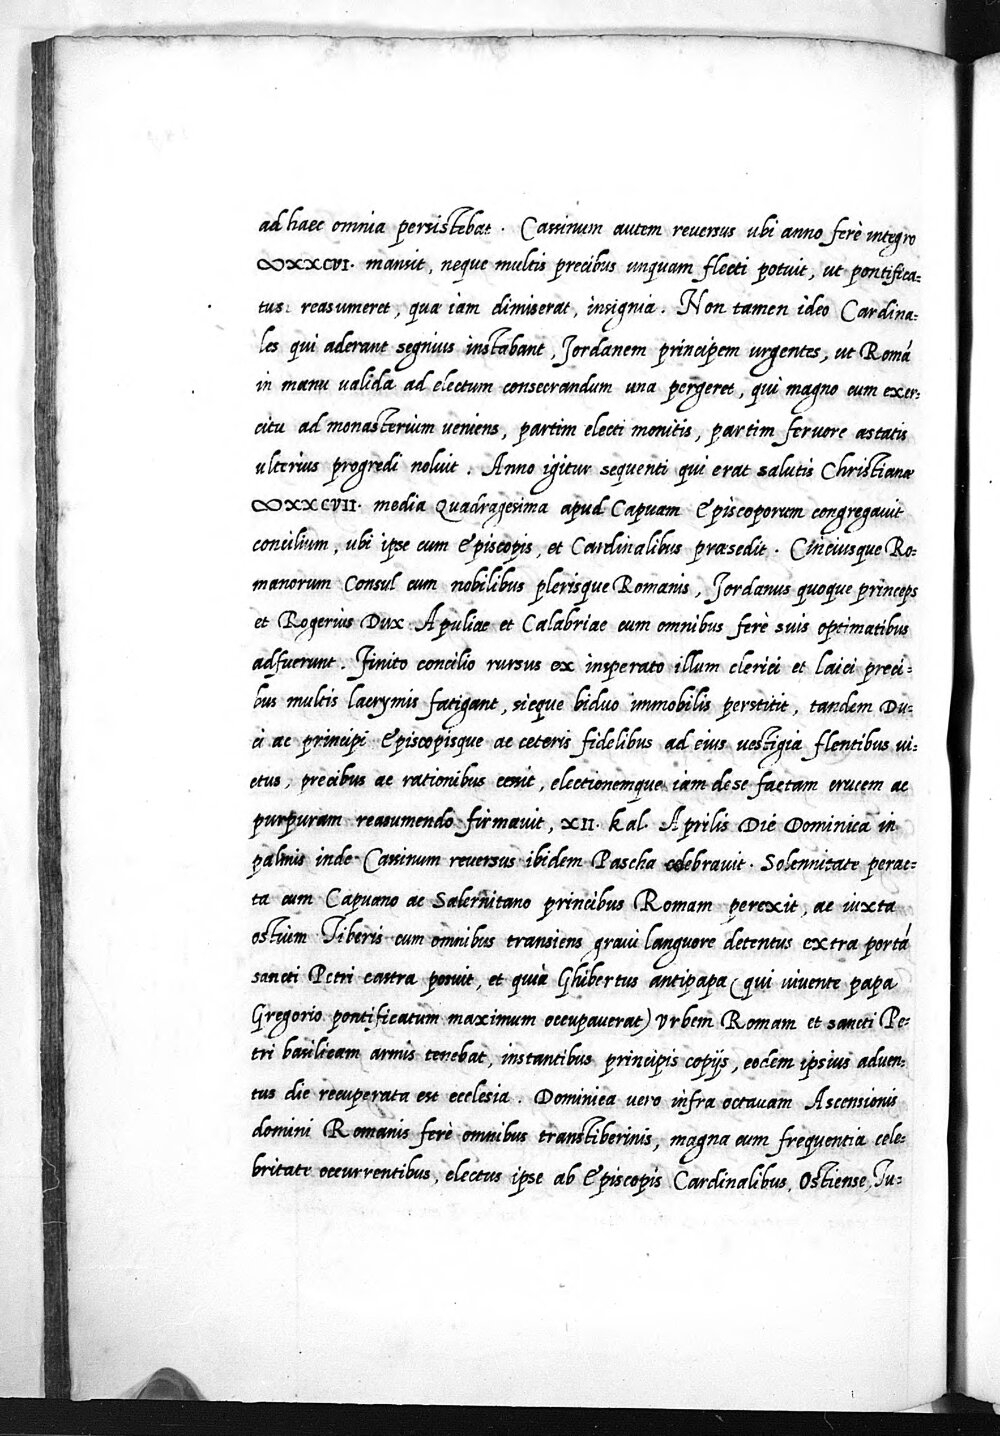 ad haec omnia persistebat. Cassinum autem reversus ubi anno ferè integro
∞XXCVI. mansit, neque multis precibus unquam flecti potuit, ut pontifica=
tus: reasumeret, qua iam dimiserat, insignia. Non tamen ideo Cardina=
les qui aderant segnius instabant, Jordanem principem urgentes, ut Romá
in manu valida ad electum consecrandum una pergeret, qui magno cum exer=
citu ad monasterium veniens, partim electi monitis, partim fervore æstatis
ulterius progredi noluit. Anno igitur sequenti qui erat salutis Christianæ
∞XXCVII. media Quadragesima apud Capuam Episcoporum congregavit
concilium, ubi ipse cum Episcopis, et Cardinalibus præsedit. Cinciusque Ro=
manorum Consul cum nobilibus plerisque Romanis, Jordanus quoque princeps
et Rogerius Dux Apuliae et Calabriae cum omnibus ferè suis optimatibus
adfuerunt. Finito concilio rursus ex insperato illum clerici et laici preci=
bus multis lacrymis fatigant, sicque biduo immobilis perstitit, tandem Du=
ci ac principi Episcopisque ac ceteris fidelibus ad eius vestigia flentibus vi=
ctus, precibus ac rationibus cessit, electionemque iam de se factam crucem ac
purpuram reasumendo firmavit, XII. kal. Aprilis Die Dominica in
palmis inde Cassinum reversus ibidem Pascha celebravit. Solennitate perac=
ta cum Capuano ac Salernitano principibus Romam perexit, ac iuxta
ostium Tiberis cum omnibus transiens gravi languore detentus extra portá
sancti Petri castra posuit, et quià Ghibertus antipapa (qui vivente papa
Gregorio pontificatum maximum occupaverat) Urbem Romam et sancti Pe=
tri basilicam armis tenebat, instantibus principis copijs, eodem ipsius adven=
tus die recuperata est ecclesia. Dominica vero infra octavam Ascensionis
domini Romanis ferè omnibus transtiberinis, magna cum frequentia cele=
britate occurrentibus, electus ipse ab Episcopis Cardinalibus, Ostiense, Tu=